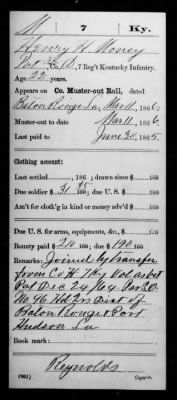 M 7 Ky.
Henry H. Money
Pvt, Co. D, 7 Reg't Kentucky Infantry.
Age 22 years.
Appears on Co. Muster-out Roll, dated
Baton Rouge La, Mar 11, 1866.
Muster-out to date Mar 11, 1866.
Last paid to June 30, 1865.
Clothing account:
Last settled , 186 ; drawn since $ 100
Due soldier $ 31 75/100; due U. S. $ 100
Am't for cloth'g in kind or money adv'd $ 100
Due U. S. for arms, equipments, &c., $ 100
Bounty paid $ 210 100; due $ 190 100
Remarks: Joined by transfer
from Co H 7 Ky Vol as vet
Pvt Dec 24 /64. Par 3 O.
No 46 Hd Qrs Dist of
Baton Rouge & Port
Hudson La
Book mark:
Reynolds
(861) Copyist.